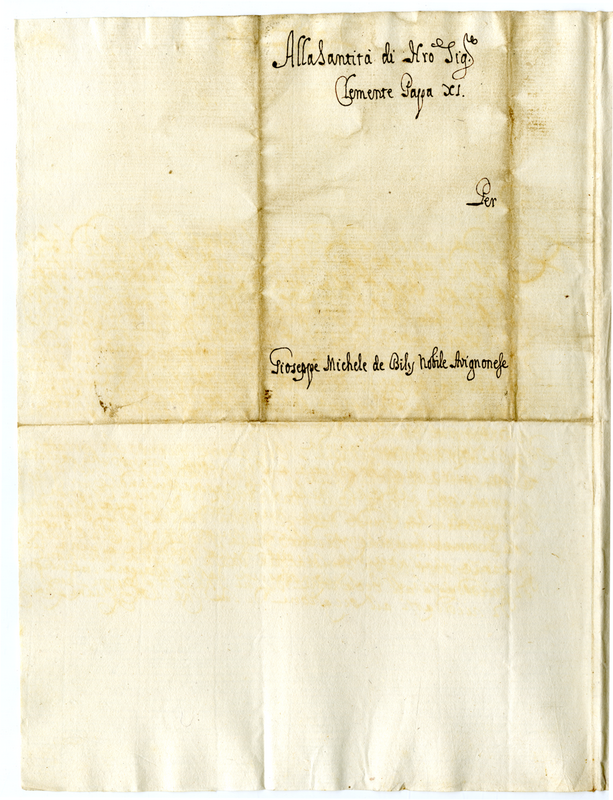 Alla Santità di Nro Sigre
Clemente Pappa XI.
Per
Gioseppe Michele de Bilÿ Nobile Avignonese